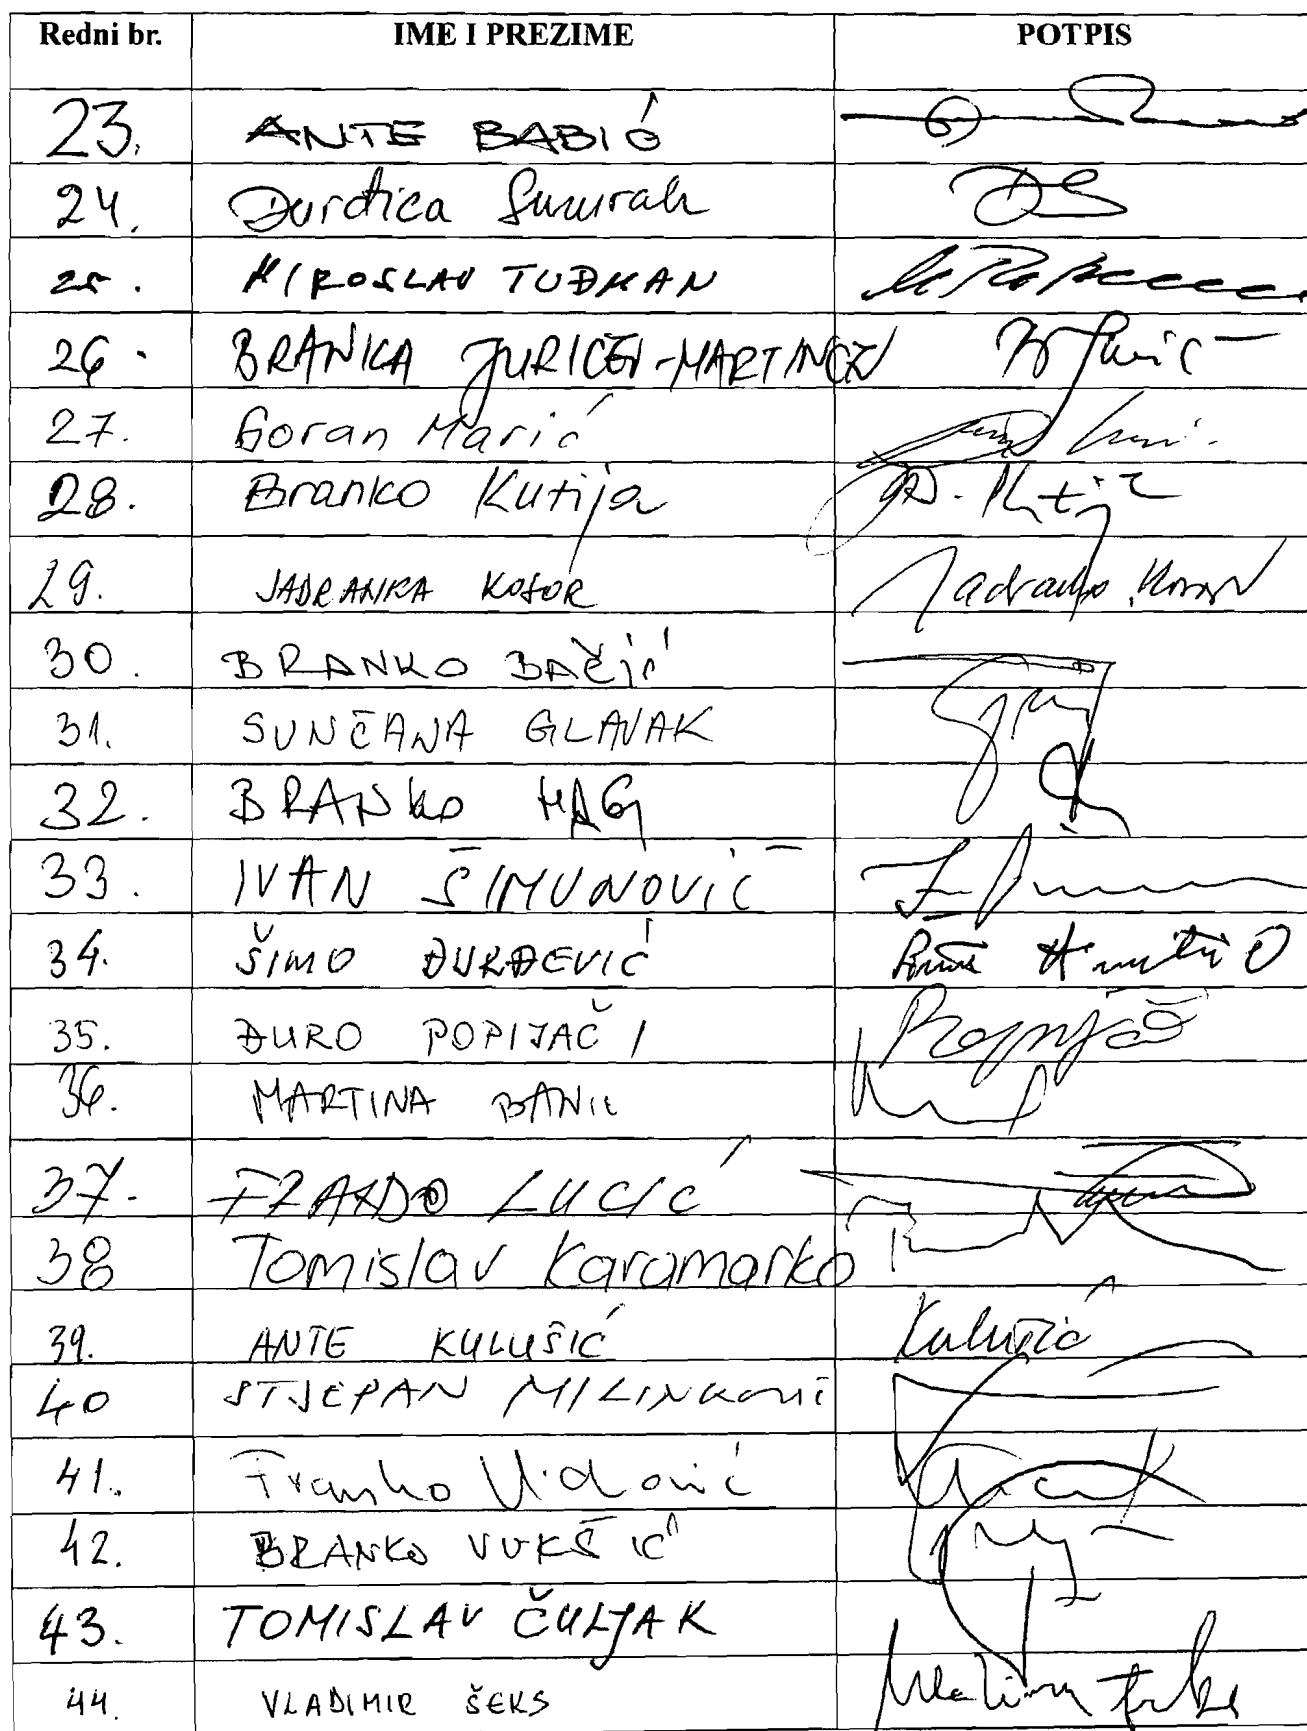 Redni br. IME I PREZIME POTPIS
23. ANTE BABIĆ
24. Đurđica Sumrak
25. MIROSLAV TUĐMAN
26. BRANKA JURIČEV-MARTINČEV
27. Goran Marić
28. Branko Kutija B. Kutija
29. JADRANKA KOSOR Jadranka Kosor
30. BRANKO BAČIĆ
31. SUNČANA GLAVAK
32. BRANKO HRG
33. IVAN ŠIMUNOVIĆ
34. ŠIMO ĐURĐEVIĆ
35. ĐURO POPIJAČ Popijač
36. MARTINA BANIĆ
37. LUCIĆ
38 Tomislav Karamarko
39. ANTE KULUŠIĆ Kulušić
40 STJEPAN MILINKOVIĆ
41. Franko Vidović
42. BRANKO VUKŠIĆ
43. TOMISLAV ČULJAK
44. VLADIMIR ŠEKS